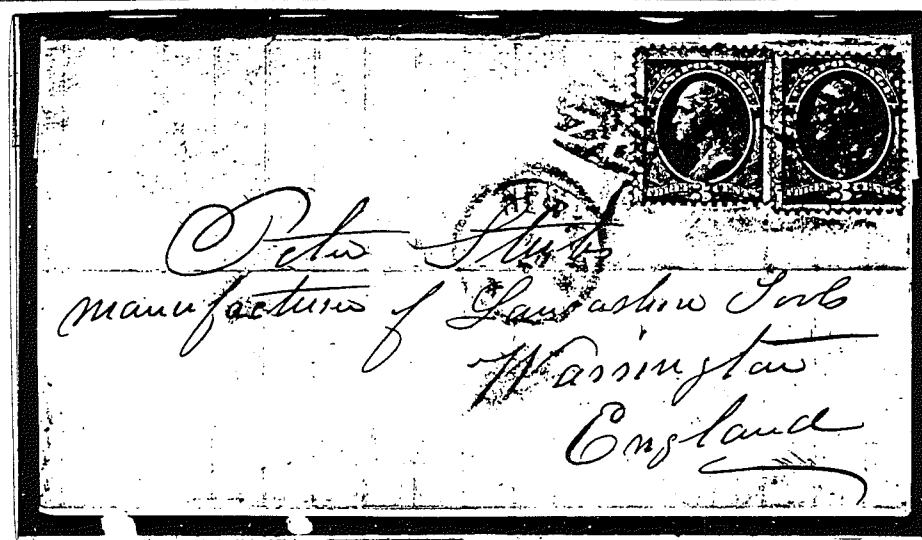 NEW
Peter Stubs
manufacturer of Lancashire Tools
Warrington
England